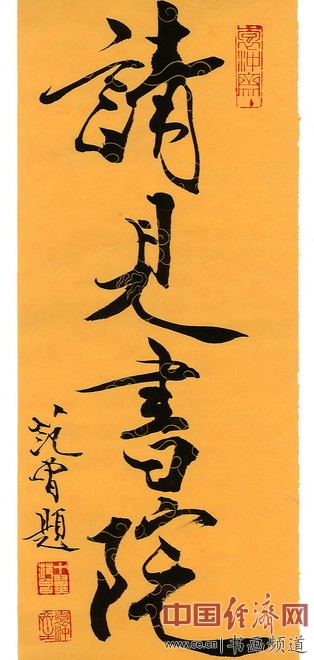 請見書院
范曾題
中国经济网
www.ce.cn | 书画频道